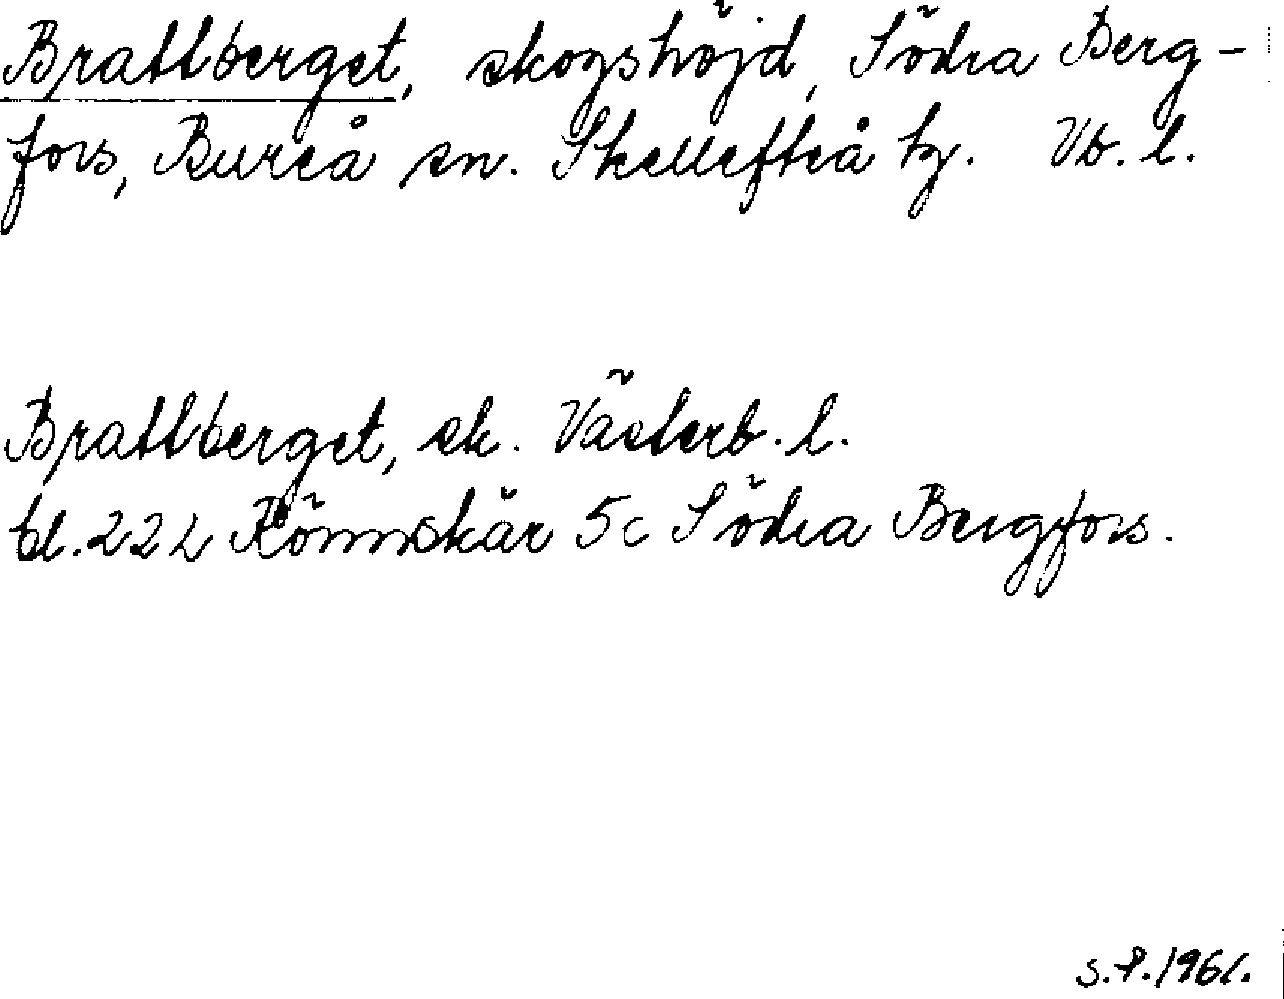 Brattberget, skogshöjd, Södra Berg-
fors, Bureå sn. Skellefteå tg. Vb. l.
Brattberget, sk. Västerb. l.
bl. 22 L Rönnskär 5c Södra Bergfors.
S. P. 1961.